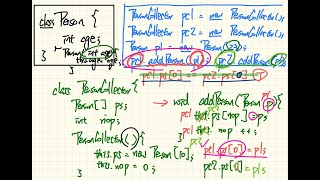 class Person {
int age;
Person(int age){
this.age = age;
}
PersonCollector pc1 = new PersonCollector();
PersonCollector pc2 = new PersonCollector();
Person p1 = new Person(23);
pc2.addPerson(p1);
pc1.ps[0] == pc2.ps[0]
class PersonCollector {
Person[] ps;
int nop;
PersonCollector() {
this.ps = new Person[10];
this.nop = 0;
}
void addPerson(Person p){
this.nop ++;
pc1.ps[0] = p1;
pc2.ps[0] = p1;